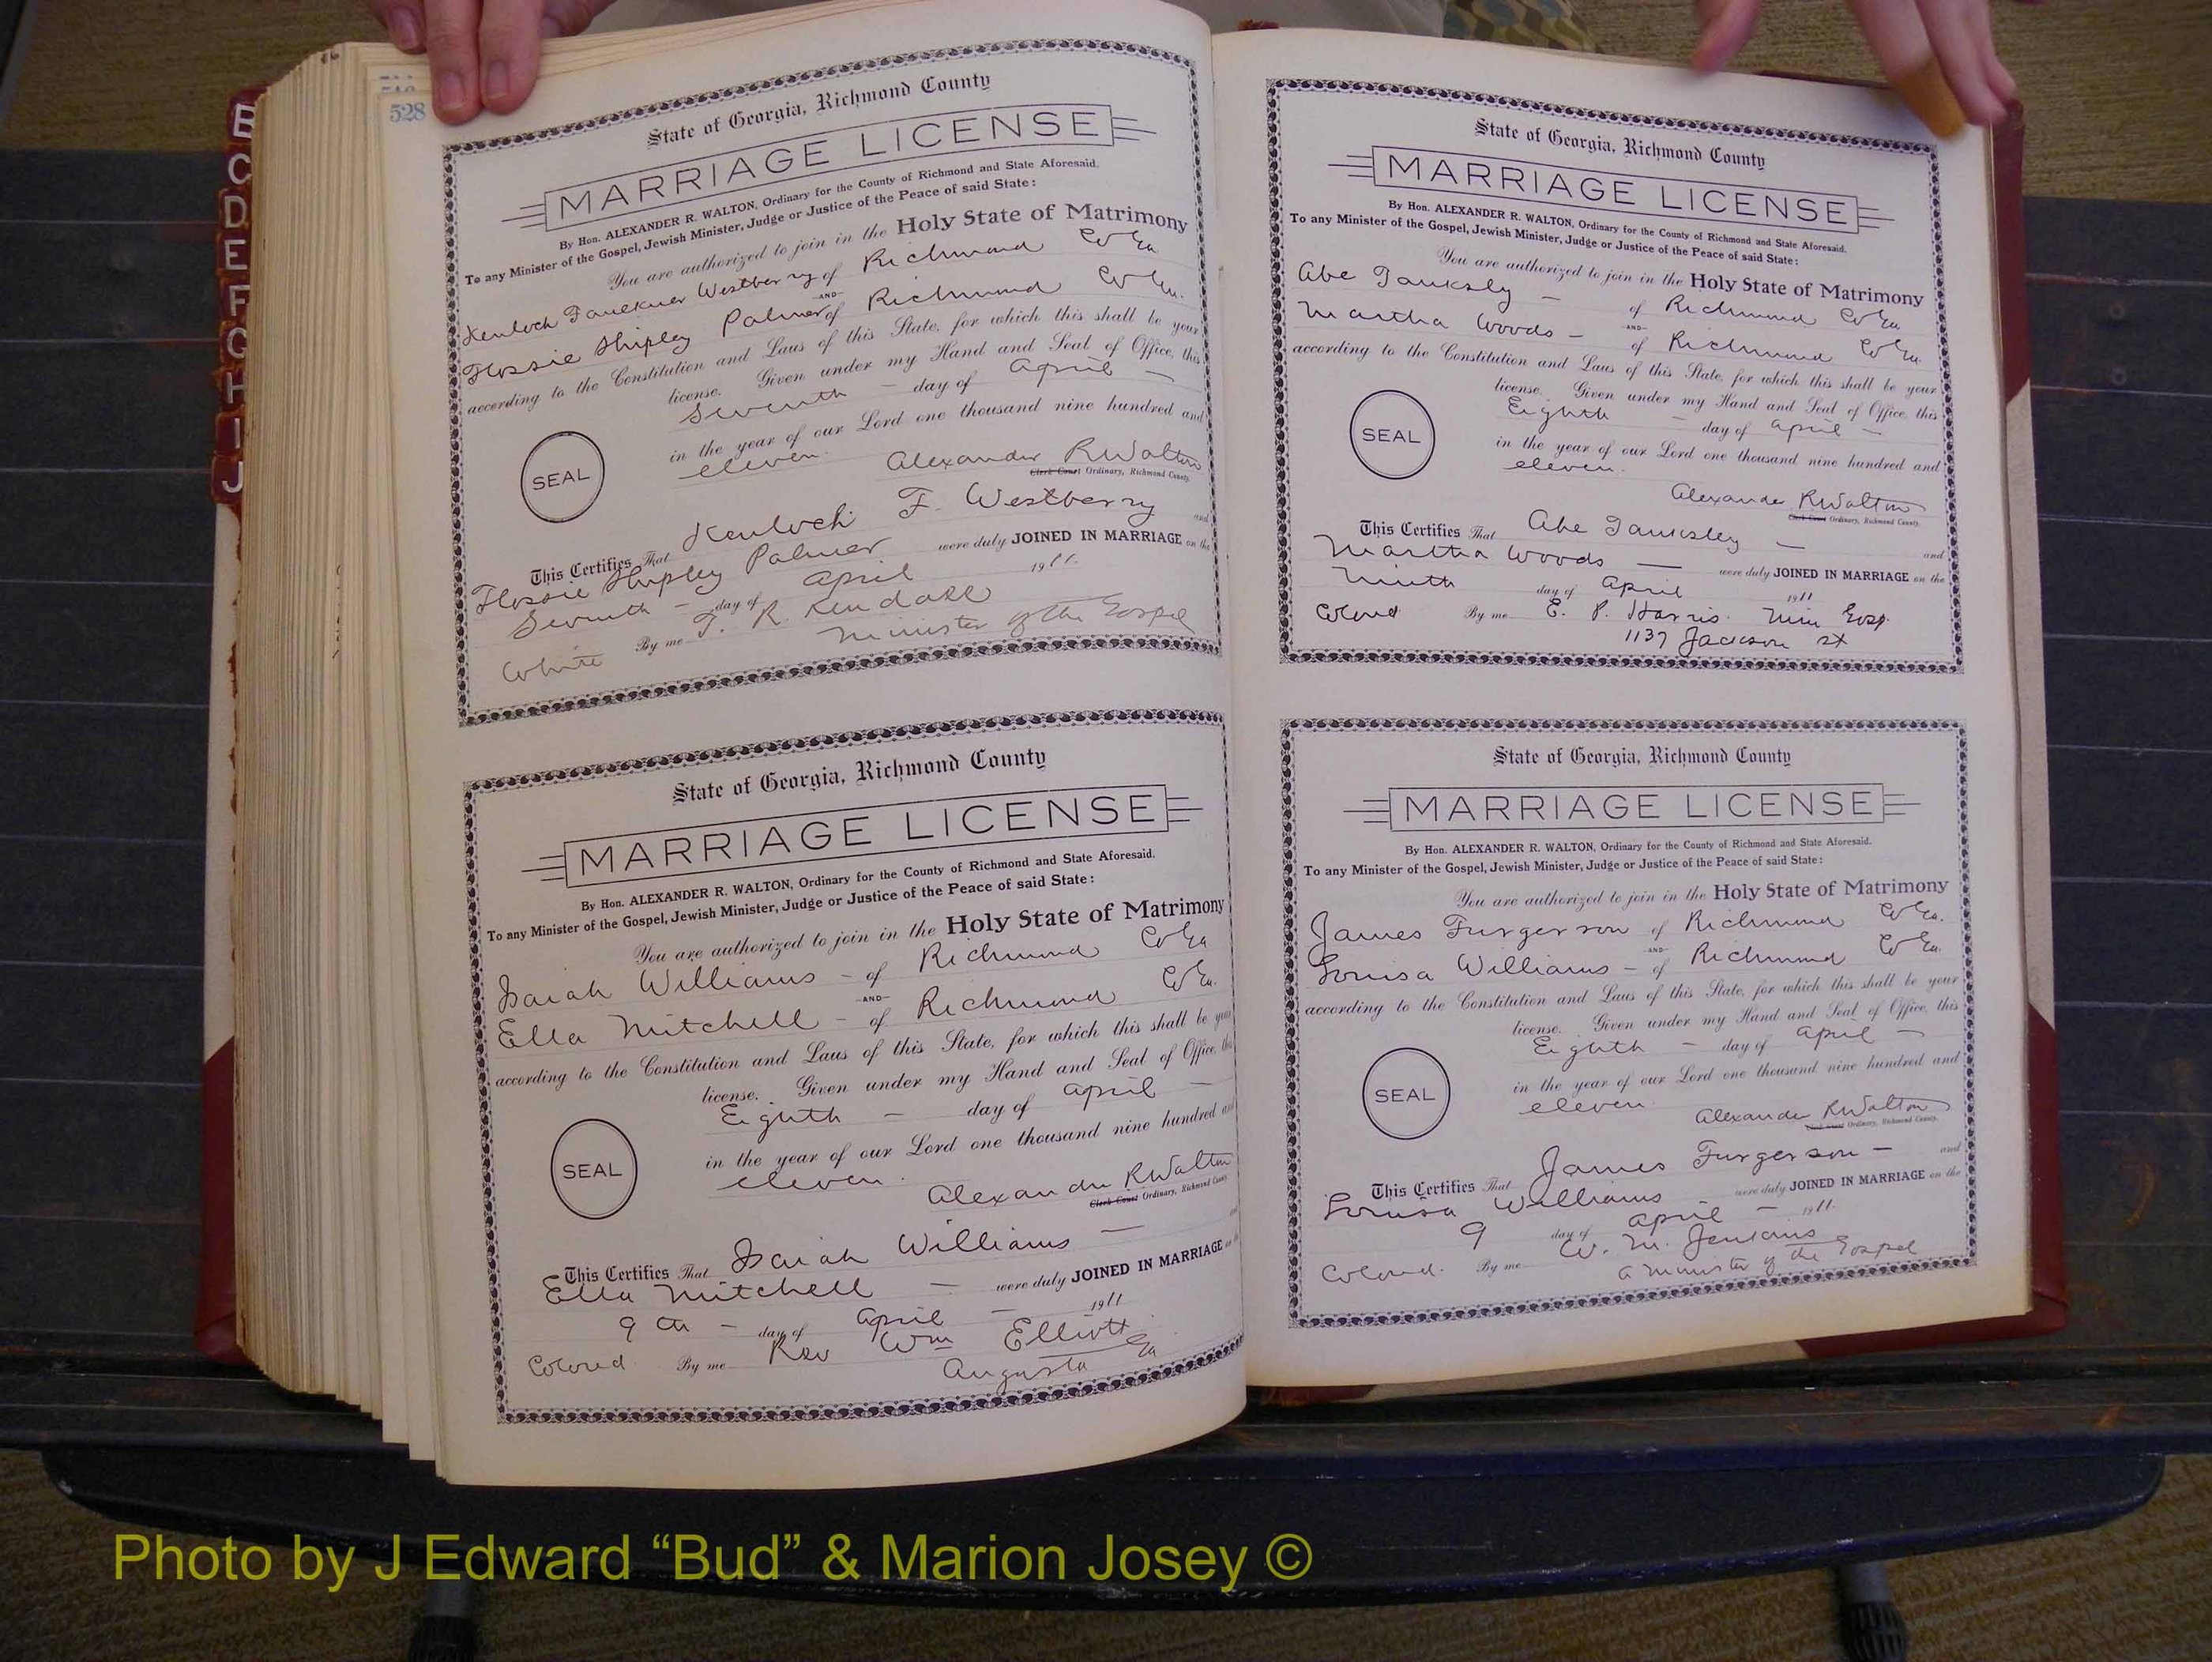 528
B
C
D
E
F
G
H
I
J
State of Georgia, Richmond County
MARRIAGE LICENSE
By Hon. ALEXANDER R. WALTON, Ordinary for the County of Richmond and State Aforesaid.
To any Minister of the Gospel, Jewish Minister, Judge or Justice of the Peace of said State:
You are authorized to join in the Holy State of Matrimony
Kenloch Faulkner Westberry of Richmond Co Ga.
-AND-
Flossie Shipley Palmer of Richmond Co Ga.
according to the Constitution and Laws of this State, for which this shall be your
license. Given under my Hand and Seal of Office, this
Seventh - day of April -
in the year of our Lord one thousand nine hundred and
eleven.
SEAL
Alexander R Walton
Clerk Court Ordinary, Richmond County.
This Certifies That Kenloch F. Westberry and
Flossie Shipley Palmer were duly JOINED IN MARRIAGE on the
Seventh - day of April 1911.
By me T. R. Kendall
White Minister of the Gospel
State of Georgia, Richmond County
MARRIAGE LICENSE
By Hon. ALEXANDER R. WALTON, Ordinary for the County of Richmond and State Aforesaid.
To any Minister of the Gospel, Jewish Minister, Judge or Justice of the Peace of said State:
You are authorized to join in the Holy State of Matrimony
Isaiah Williams - of Richmond Co Ga
-AND-
Ella Mitchell - of Richmond Co Ga.
according to the Constitution and Laws of this State, for which this shall be your
license. Given under my Hand and Seal of Office, this
Eighth - day of April -
in the year of our Lord one thousand nine hundred and
eleven.
SEAL
Alexander R Walton
Clerk Court Ordinary, Richmond County.
This Certifies That Isaiah Williams -
Ella Mitchell - were duly JOINED IN MARRIAGE
9th - day of April - 1911
Colored By me Rev Wm Elliott
Augusta Ga
State of Georgia, Richmond County
MARRIAGE LICENSE
By Hon. ALEXANDER R. WALTON, Ordinary for the County of Richmond and State Aforesaid.
To any Minister of the Gospel, Jewish Minister, Judge or Justice of the Peace of said State:
You are authorized to join in the Holy State of Matrimony
Abe Tanksly - of Richmond Co Ga
-AND-
Martha Woods - of Richmond Co Ga.
according to the Constitution and Laws of this State, for which this shall be your
license. Given under my Hand and Seal of Office, this
Eighth - day of April -
in the year of our Lord one thousand nine hundred and
eleven.
SEAL
Alexander R Walton
Clerk Court Ordinary, Richmond County.
This Certifies That Abe Tanksley - and
Martha Woods - were duly JOINED IN MARRIAGE on the
Ninth day of April 1911
Colored By me E. P. Harris. Min Gosp.
1137 Jackson st
State of Georgia, Richmond County
MARRIAGE LICENSE
By Hon. ALEXANDER R. WALTON, Ordinary for the County of Richmond and State Aforesaid.
To any Minister of the Gospel, Jewish Minister, Judge or Justice of the Peace of said State:
You are authorized to join in the Holy State of Matrimony
James Furgerson of Richmond Co Ga.
-AND-
Louisa Williams - of Richmond Co Ga.
according to the Constitution and Laws of this State, for which this shall be your
license. Given under my Hand and Seal of Office, this
Eighth - day of April -
in the year of our Lord one thousand nine hundred and
eleven.
SEAL
Alexander R Walton
Clerk Court Ordinary, Richmond County.
This Certifies That James Furgerson - and
Louisa Williams - were duly JOINED IN MARRIAGE on the
9 day of April - 1911.
Colored. By me W. M. Jenkins
a minister of the Gospel
Photo by J Edward “Bud” & Marion Josey ©